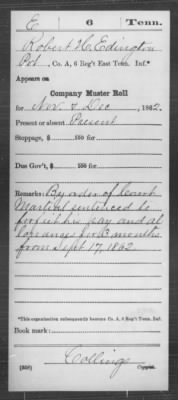 E 6 Tenn.
Robert H. Edington
Pvt, Co. A, 6 Reg't East Tenn. Inf.*
Appears on
Company Muster Roll
for Nov & Dec, 1862.
Present or absent Present
Stoppage, $ 100 for
Due Gov't, $ 100 for
Remarks: By order of Court
Martial sentenced to
forfeit his pay and al
lowances for 3 months
from Sept 17, 1862
*This organization subsequently became Co. A, 6 Reg't Tenn. Inf.
Book mark:
Collings
(358) Copyist.